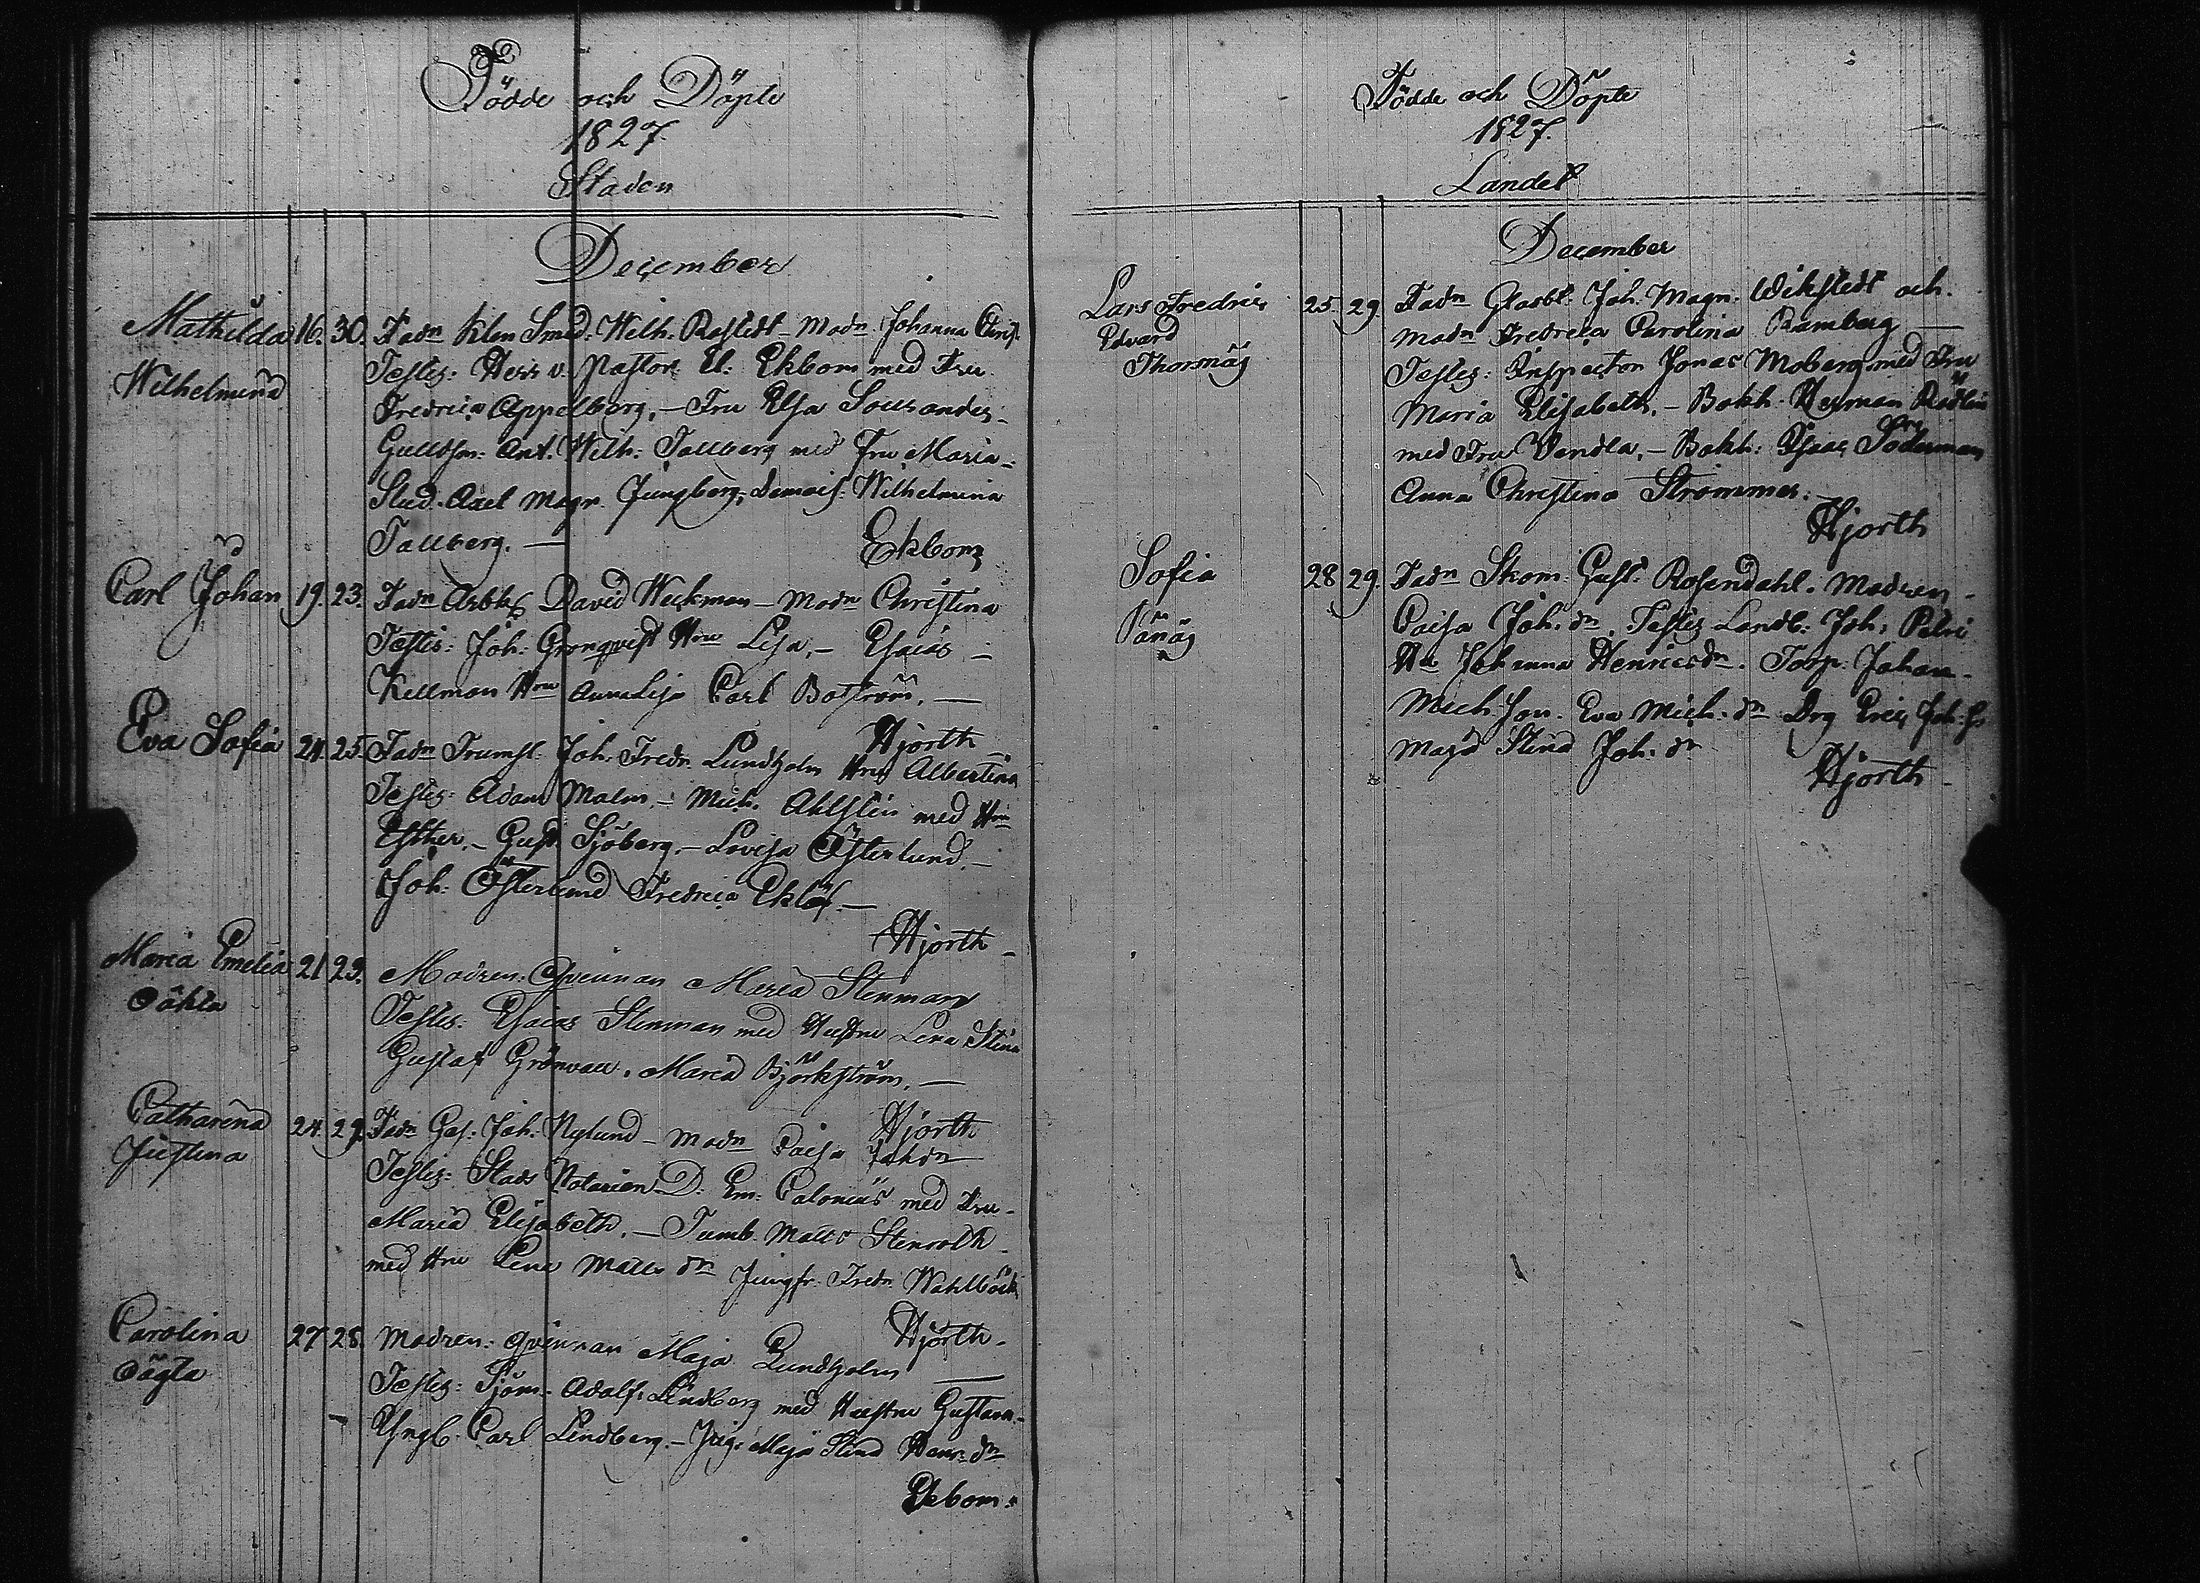 Födde och Döpte
1827.
Staden
December
Mathilda 16. 30. Fadn Klen Smed. Wilh. Rostedt – Modn Johanna Christ.
Wilhelmina Testes: Herr v. Pastor El. Ekbom med Fru
Fredrica Appelberg, – Fru Elsa Sourander
Guldsm. Ant. Wilh. Tallberg med Fru Maria –
Stud. Axel Magn. Ljungberg, Demois. Wilhelmina
Tallberg. —
Ekbom
Carl Johan 19. 23. Fadn Arbk. David Weckman – Modn Christina
Testis: Joh: Grönqvist Hru Lisa, – Esaias –
Kellman Hru Anna Lisa Carl Boström. —
Hjorth
Eva Sofia 24. 25. Fadn Trumsl. Joh. Fredr. Lundholm Hru Albertina
Testes: Adam Malm. – Mich. Ahlstén med Hru
Esther. – Gust. Sjöberg. – Lovisa Österlund –
Joh: Österlund Fredrica Eklöf. —
Hjorth
Maria Emelia 21 23. Modren: Qvinnan Maria Stenman
oäkta Testes: Esaias Stenman med Hustru Lena Stina
Gustaf Grönvall. Maria Björkström. —
Hjorth
Catharina 24. 29. Fadn Ges: Joh: Nylund – Modn Caisa Johdr
Justina Testes: Stads Notarien D. Em: Calonius med Fru
Maria Elisabeth. – Timb. Matts Stenroth
med Hru Lena Matts dr Jungfr. Fredr. Wahlbäck
Hjorth
Carolina 27 28. Modren: qvinnan Maja Lundholm —
oägta Testes: Sjöm. Adolf Lindberg med Hustru Gustava
Yngl. Carl Lindberg. – Pig. Maja Stina Henr. dr
Ekbom.
Födde och Döpte
1827.
Landet
December
Lars Fredric 25. 29. Fadn Glasbl. Joh. Magn. Wikstedt och
Edvard Modn Fredrica Carolina Ramberg —
Thornäs Testes: Inspector Jonas Moberg med Fru
Maria Elisabeth. – Bokh. Herman
med Fru Vendla. – Bokh: Isaac Söderman
Anna Christina Strömmer.
Hjorth
Sofia 28 29. Fadn Skom. Gust: Rosendahl. Modren
Caisa Joh. dr. Testes Landb: Joh: Petri
Hu Johanna Henricsdr. Torp. Johan
Mich.son. Eva Mich. dr Drg Eric Joh. s.
Maja Stina Joh. dr
Hjorth